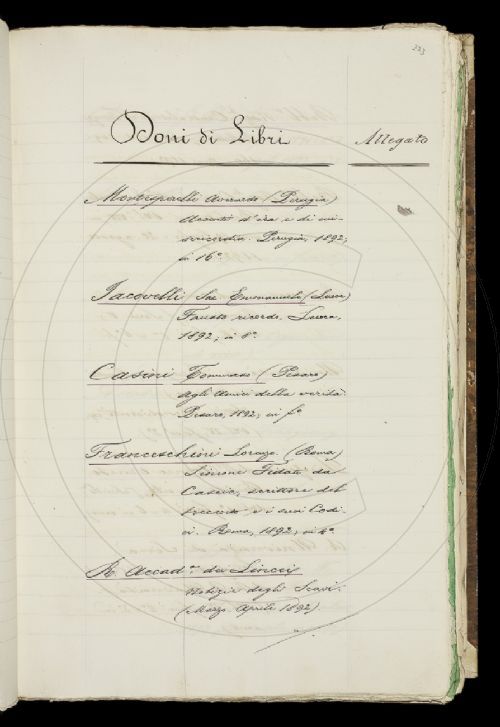 223
Doni di Libri Allegato
Montesperelli Averardo (Perugia)
Accenti d'ira e di mi-
sericordia. Perugia, 1892;
in 16º
Iacovelli Sac. Emmanuele (Lucera)
Fausto ricordo. Lucera,
1892; in 8º
Casini Tommaso (Pesaro)
Agli Amici della verità.
Pesaro, 1892; in fº
Franceschini Lorenzo (Roma)
Simone Fidati da
Cascia, scrittore del
trecento e i suoi Codi-
ci. Roma, 1892; in 4º
R. Accad. dei Lincei
Notizie degli Scavi.
(Marzo Aprile 1892)